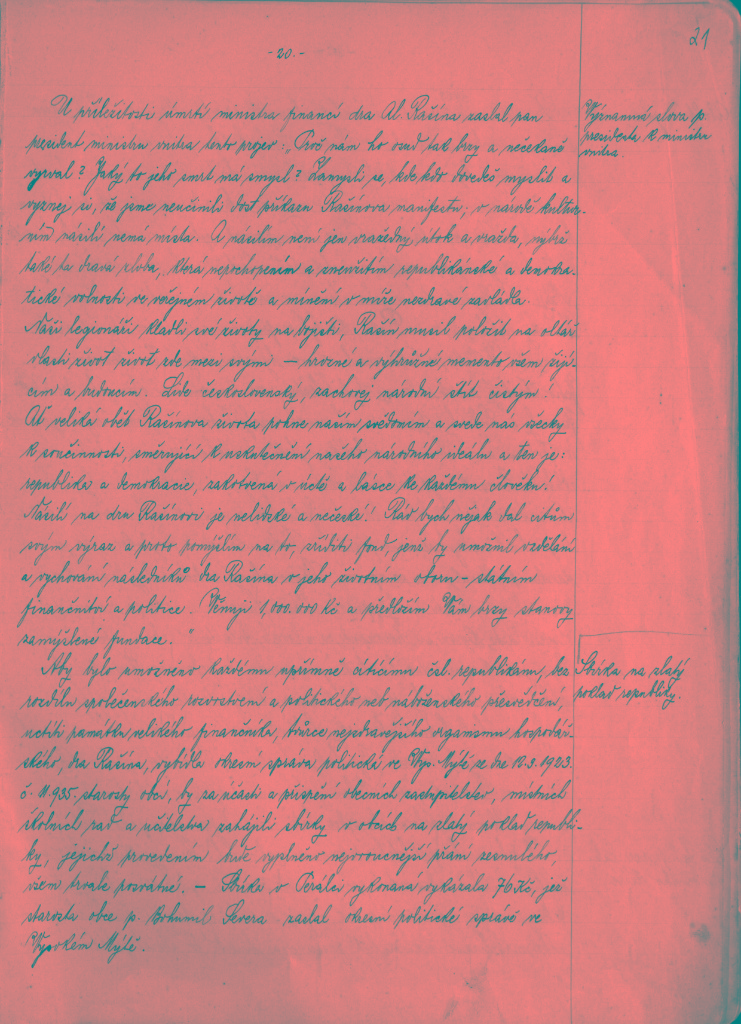 21
- 20. -
U příležitosti úmrtí ministra financí dra Al. Rašína zaslal pan
president ministru vnitra tento projev: „Proč nám ho osud tak brzy a nečekaně
vyrval? Jaký to jeho smrt má smysl? Zamysli se, kde kdo dovedeš myslit a
vyznej si, že jsme neučinili dost příkazu Rašínova manifestu; v národě kultur-
ním násilí nemá místa. A násilím není jen vražedný útok a vražda, nýbrž
také ta dravá zloba, která nepochopením a zneužitím republikánské a demokra-
tické volnosti ve veřejném životě a mínění v míře nezdravé zavládla.
Naši legionáři kladli své životy na bojišti, Rašín musil položit na oltář
vlasti život život zde mezi svými – hrozné a výhrůžné memento vám žijí-
cím a budoucím. Lide československý, zachovej národní štít čistým!
Ať veliká oběť Rašínova života pohne naším svědomím a svede nás všecky
k součinnosti, směřující k uskutečnění našeho národního ideálu a ten je:
republika a demokracie, zakotvená v úctě a lásce ke každému člověku!
Násilí na dru Rašínovi je nelidské a nečeské! Rád bych nějak dal citům
svým výraz a proto pomýšlím na to, zříditi fond, jenž by umožnil vzdělání
a vychování následníků dra Rašína v jeho životním oboru – státním
finančnictví a politice. Věnuji 1,000.000 Kč a předložím Vám brzy stanovy
zamýšlené fundace."
Aby bylo umožněno každému upřímně cítícímu čsl. republikánu, bez
rozdílu společenského rozvrstvení a politického neb náboženského přesvědčení,
uctíti památku velikého finančníka, tvůrce nejzdravějšího organismu hospodář-
ského, dra Rašína, vybídla okresní správa politická ve Vys. Mýtě ze dne 12.3.1923.
č. 11.935. starosty obcí, by za účasti a přispění obecních zastupitelstev, místních
školních rad a učitelstva zahájili sbírky v obcích na zlatý poklad republi-
ky, jejichž provedením bude vyplněno nejvroucnější přání zesnulého,
všem trvale posvátné. – Sbírka v Perálci vykonaná vykázala 76 Kč, jež
starosta obce p. Bohumil Severa zaslal okresní politické správě ve
Vysokém Mýtě.
Významná slova p.
presidenta k ministru
vnitra.
Sbírka na zlatý
poklad republiky.